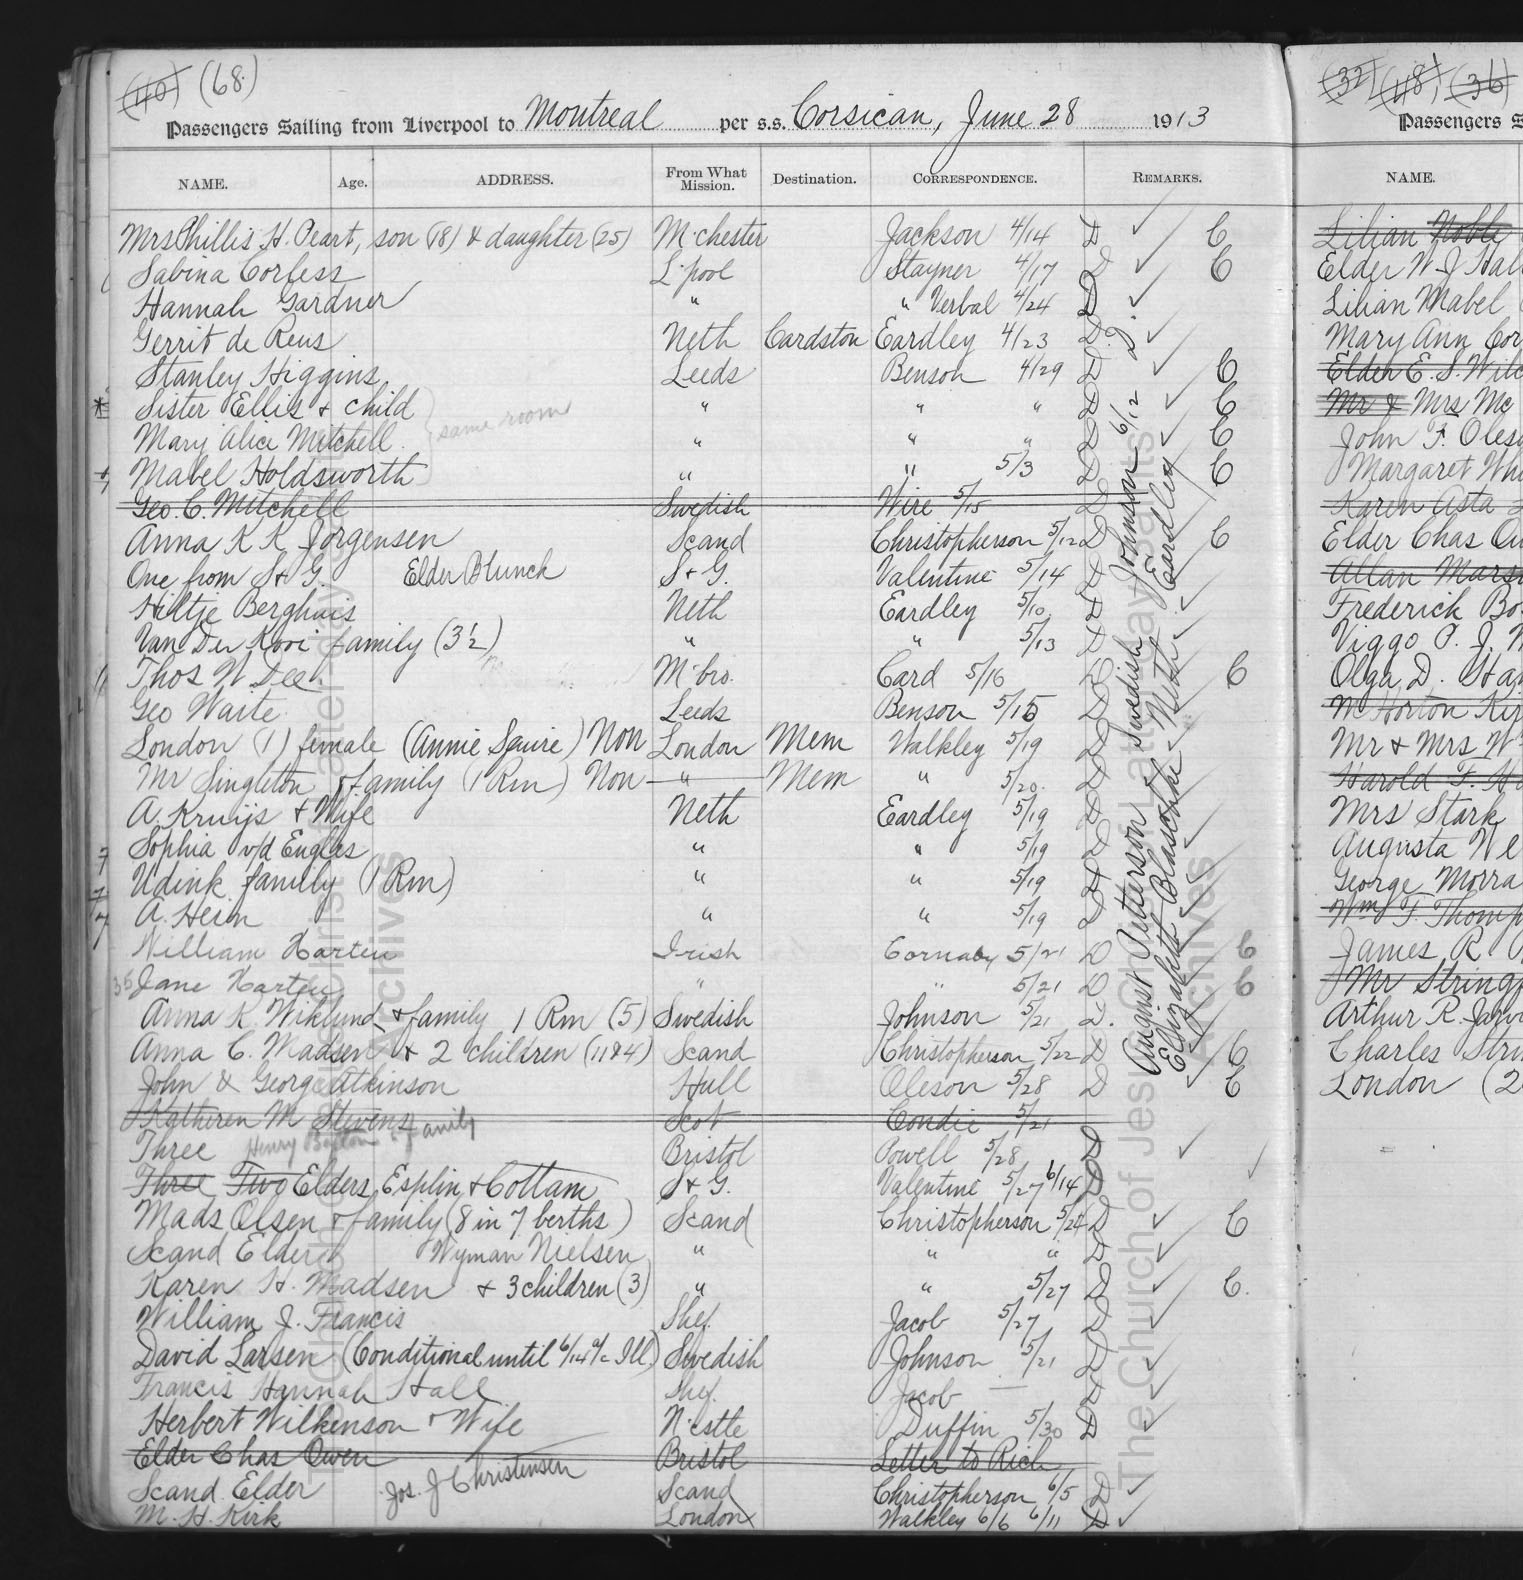 (40) (68)
Passengers Sailing from Liverpool to Montreal per s.s. Corsican, June 28 1913
NAME. Age. ADDRESS. From What Mission. Destination. CORRESPONDENCE. REMARKS.
Mrs Phillis H. Peart, son (18) & daughter (25) M'chester Jackson 4/14 D C
Sabina Corless L'pool Stayner 4/17 D C
Hannah Gardner " " Verbal 4/24 D
Gerrit de Reus Neth Cardston Eardley 4/23 D
Stanley Higgins Leeds Benson 4/29 D C
Sister Ellis & child " " " D C
same room
Mary Alice Mitchell " " " D C
Mabel Holdsworth " " 5/3 D C
Geo. C. Mitchell Swedish Wire 5/15 D
Anna K K Jorgensen Scand Christopherson 5/12 D C
One from S & G. Elder Blunck S & G. Valentine 5/14 D
Hiltje Berghuis Neth Eardley 5/10 D
Van Der Kooi family (3½) " " 5/13 D
Thos W. Dee M'bro. Card 5/16 D C
Geo Waite Leeds Benson 5/15 D
London (1) female (Annie Squire) Non London Mem Walkley 5/19 D
Mr Singleton & family (1 Rm) Non " Mem " 5/20 D
A. Kruijs & Wife Neth Eardley 5/19 D
Sophia v/d Engles " " 5/19 D
Udink family (1 Rm) " " 5/19 D
A. Hein " " 5/19 D
William Harten Irish Cornaby 5/21 D C
35 Jane Harten " " 5/21 D C
Anna K. Wiklund & family 1 Rm (5) Swedish Johnson 5/21 D.
Anna C. Madsen & 2 children (11&4) Scand Christopherson 5/22 D C
John & George Atkinson Hull Oleson 5/28 D C
Katheren M Stevens Scot Condie 5/21
Three Henry Bolton & family Bristol Powell 5/28 D
Three Two Elders, Esplin & Cottam S & G. Valentine 5/27 6/14 D
Mads Olsen & family (8 in 7 berths) Scand Christopherson 5/24 D C
Scand Elder Wyman Nielsen " " " D
Karen H. Madsen & 3 children (3) " " 5/27 D C.
William J. Francis Shef. Jacob 5/27 D
David Larsen (Conditional until 6/14 a/c Ill) Swedish Johnson 5/21 D
Francis Hannah Hall Shef. Jacob — D
Herbert Wilkenson & Wife N'cstle Duffin 5/30 D
Elder Chas Owen Bristol Letter to Rich
Scand. Elder Jos. J Christensen Scand Christopherson 6/5 D
M. H. Kirk London Walkley 6/6 6/11 D
August Petterson Swedish Johnson 6/12 D.
Elizabeth Blaschke Neth. Eardley
The Church of Jesus Christ of Latter-day Saints
Archives
The Church of Jesus Christ of Latter-day Saints
Archives
(32) (48) (36)
Passengers S
NAME.
Lilian Noble
Elder W. J. Hal
Lilian Mabel
Mary Ann Cor
Elder E. S. Wilc
Mr & Mrs Mc
John F. Oles
Margaret Whi
Karen Asta
Elder Chas Ow
Allan Mars
Frederick Bo
Viggo P. J.
Olga D. Han
Mr & Mrs W
Harold F. H
Mrs Stark
Augusta We
George Morra
Wm F. Thomp
James R
Mr String
Arthur R. Jarv
Charles Stri
London (2